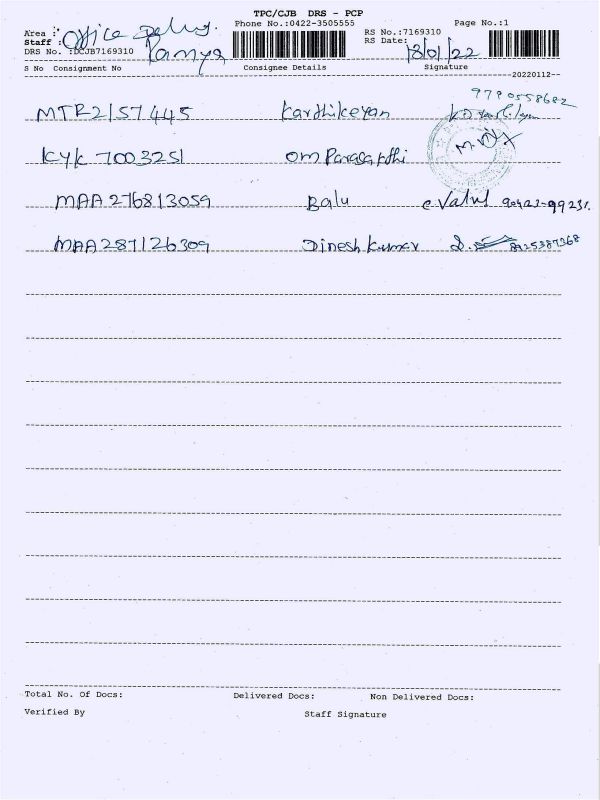 TPC/CJB DRS - PCP
Phone No.:0422-3505555 Page No.:1
Area : Office Delivery.
Staff : Ramya
DRS No. :DCJB7169310
RS No.:7169310
RS Date: 18/01/22
S No Consignment No Consignee Details Signature
--20220112--
9790558682
MTR2157445 Karthikeyan
KYK 7003251 Om Parasakthi
MAA276813059 Balu 90423-99231.
MAA287126309 Dinesh Kumar 8925387368
Total No. Of Docs: Delivered Docs: Non Delivered Docs:
Verified By Staff Signature